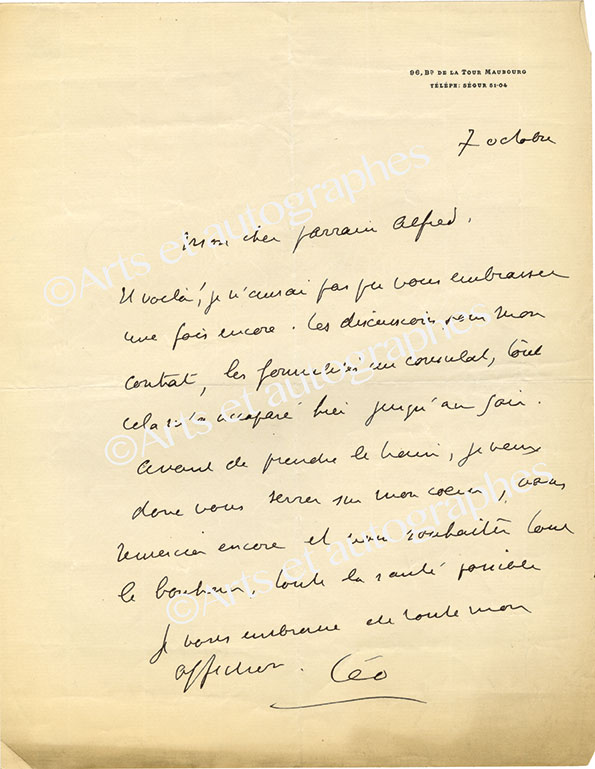 96, Bd DE LA TOUR MAUBOURG
TÉLÉPH: SÉGUR 51-04
7 octobre
Mon cher parrain Alfred,
Et voilà! je n'aurai pas pu vous embrasser
une fois encore. Les discussions pour mon
contrat, les formalités au consulat, tout
cela m'a accaparé hier jusqu'au soir.
Avant de prendre le train, je veux
donc vous serrer sur mon coeur, vous
remercier encore et vous souhaiter tout
le bonheur, toute la santé possible
Je vous embrasse de toute mon
affection. Géo
©Arts et autographes
©Arts et autographes
©Arts et autographes